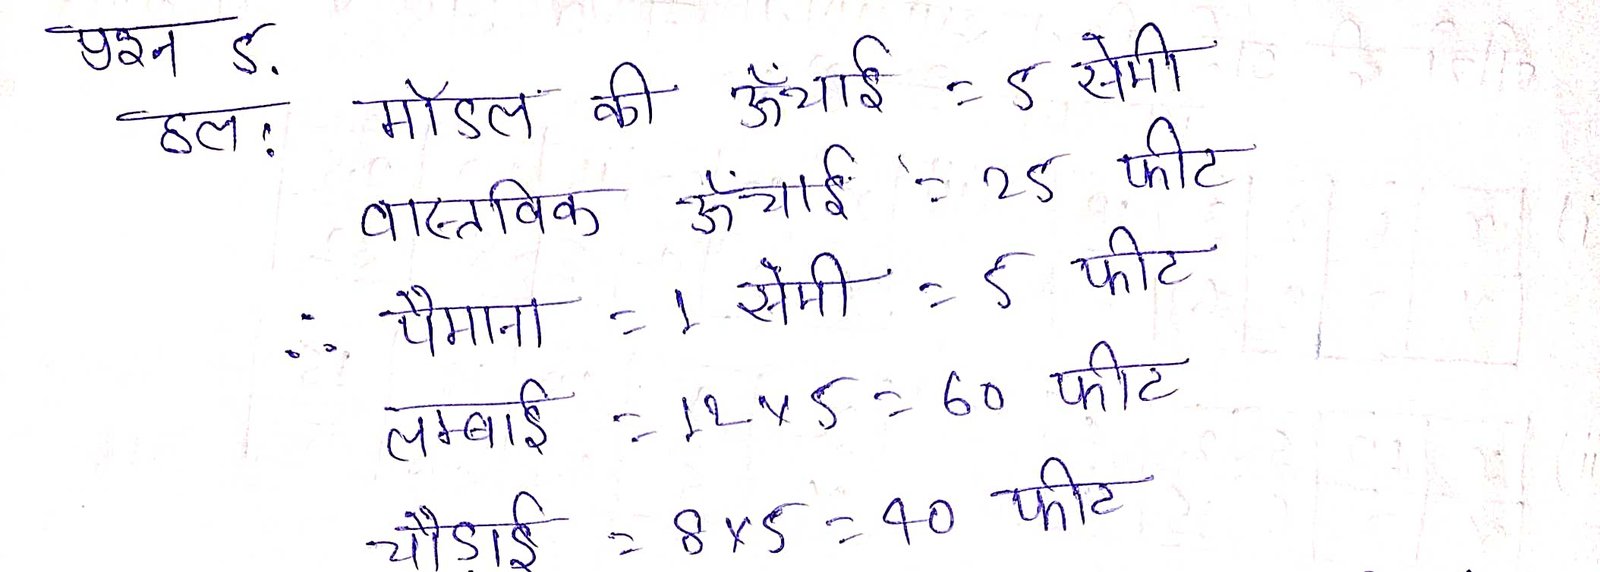 प्रश्न 5.
हल: मॉडल की ऊँचाई = 5 सेमी
वास्तविक ऊँचाई = 25 फीट
∴ पैमाना = 1 सेमी = 5 फीट
लम्बाई = 12 × 5 = 60 फीट
चौड़ाई = 8 × 5 = 40 फीट